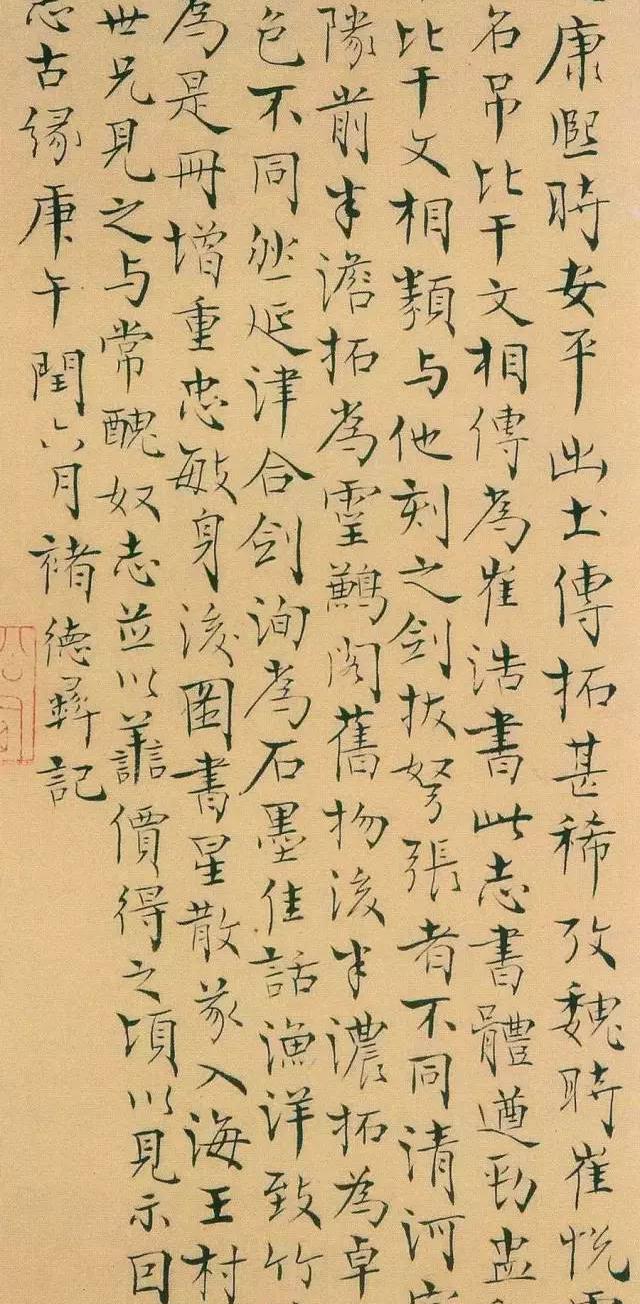 康熙時安平出土傳拓甚稀攷魏時崔悅
名弔比干文相傳為崔浩書此志書體遒勁
比干文相類与他刻之劍拔弩張者不同清河
隊前半澹拓為靈鶼閣舊物後半濃拓為卓
色不同然延津合劍洵為石墨佳話漁洋致竹
為是冊增重忠敏身後圖書星散冢入海王村
世兄見之与常醜奴志並以善價得之頃以見示因
志古緣庚午閏六月褚德彝記